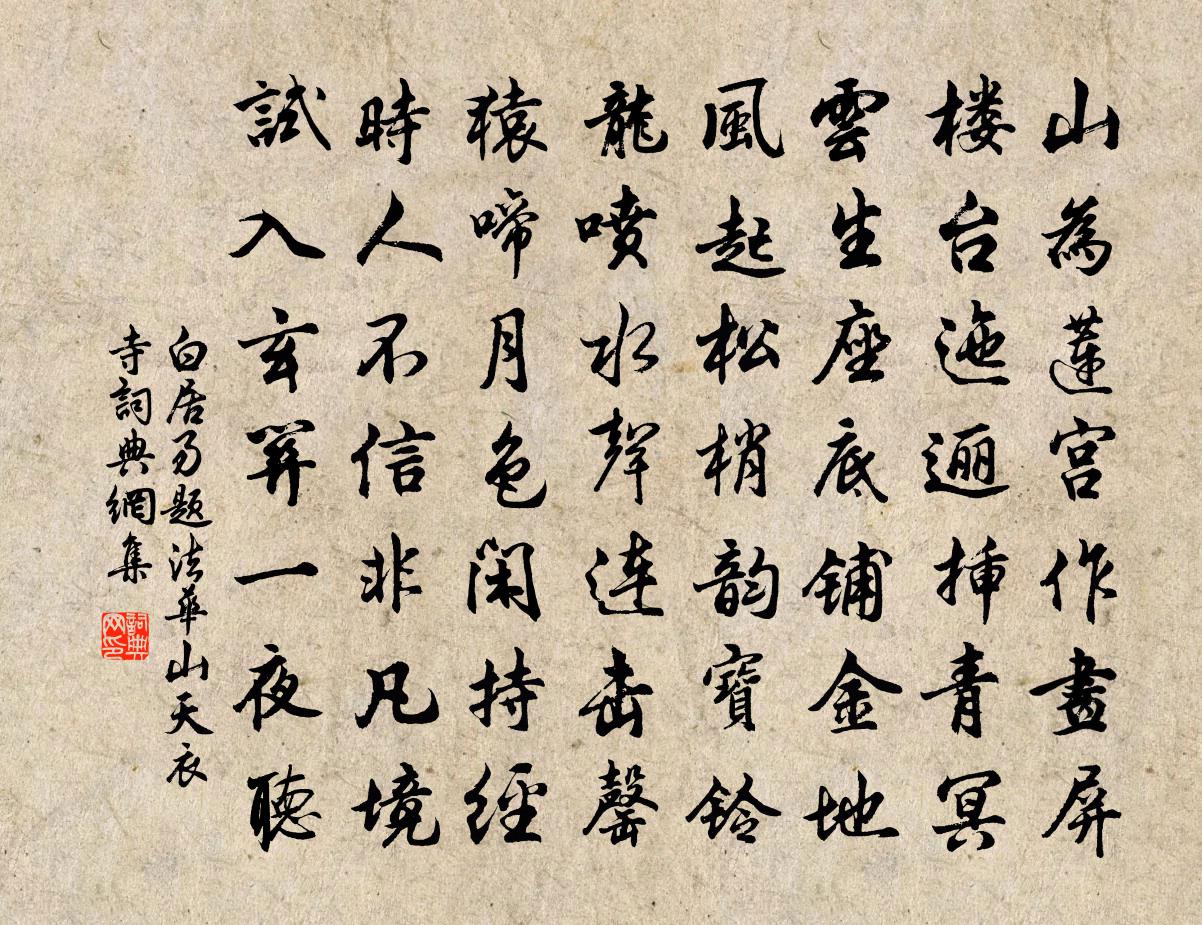 山為蓮宮作畫屏
楼台迤逦插青冥
雲生座底鋪金地
風起松梢韵寶鈴
龍噴水聲連击罄
猿啼月色閑持經
時人不信非凡境
試入玄關一夜聽
白居易题法華山天衣
寺詞典網集
詞典网印